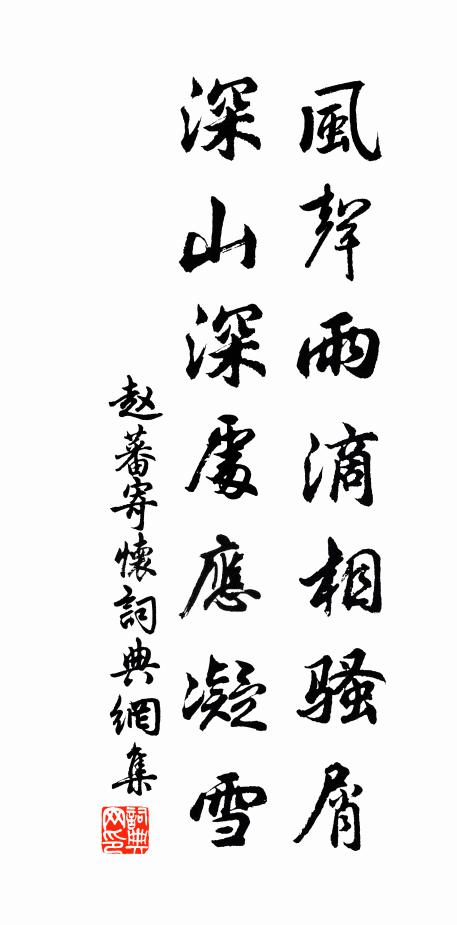 風聲雨滴相騷屑
深山深處應凝雪
赵蕃寄懷詞典網集
詞典网印